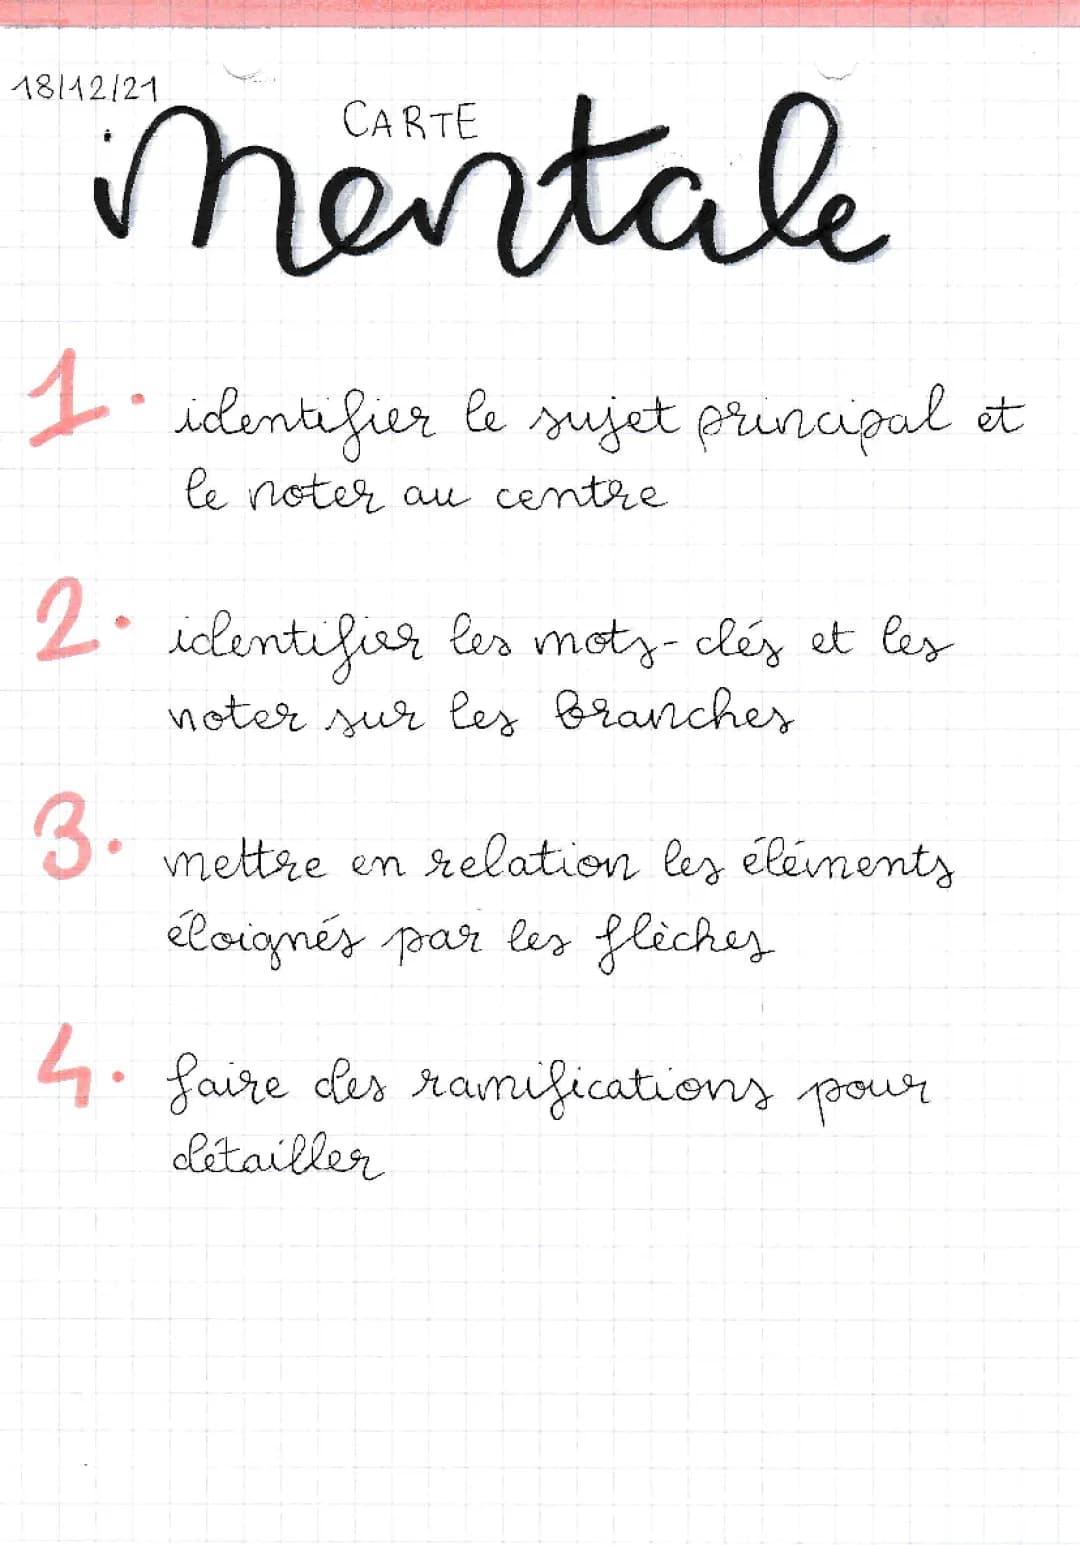 18/12/21
CARTE
mentale
1. identifier le sujet principal et
le noter au centre
2. identifier les mots-clés et les
noter sur les branches
3. mettre en relation les éléments
éloignés par les flèches
4. faire des ramifications pour
détailler